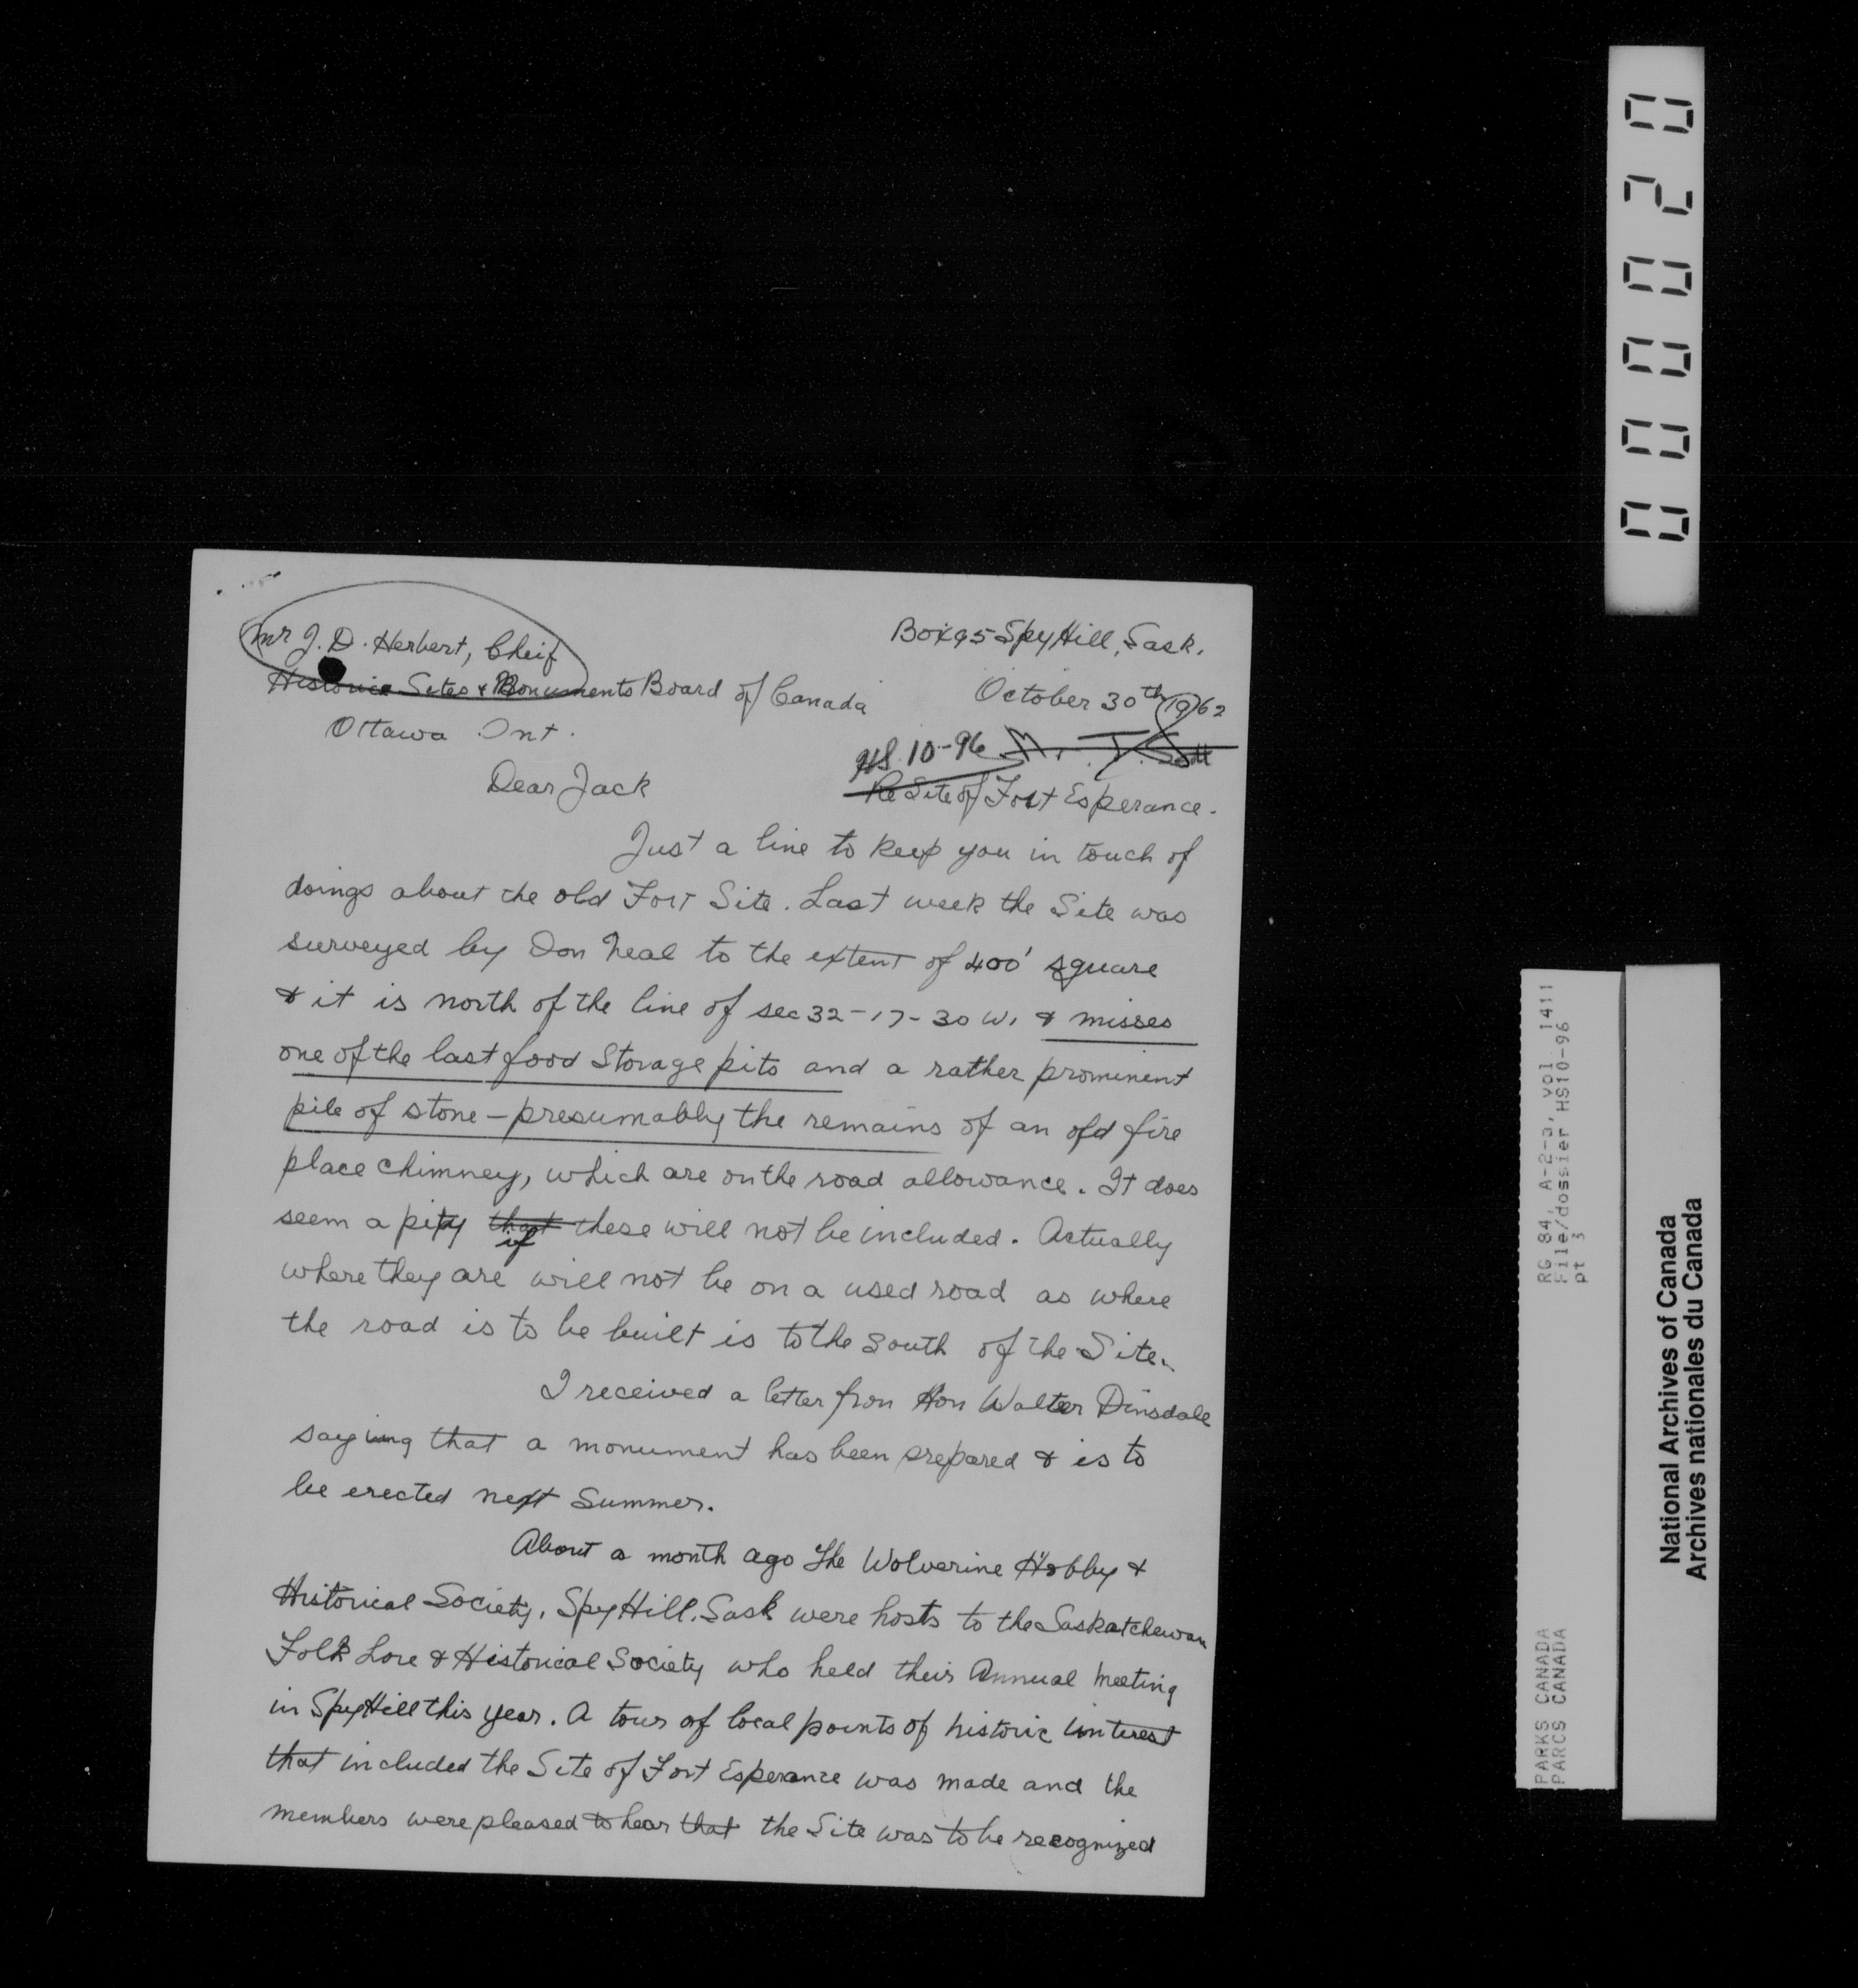 Mr J. D. Herbert, Cheif
Historic Sites & Monuments Board of Canada
Ottawa Ont.
Box 95 Spy Hill, Sask.
October 30th 1962
HS 10-96 Mr. T. Scott
Re Site of Fort Esperance.
Dear Jack
Just a line to keep you in touch of
doings about the old Fort Site. Last week the Site was
surveyed by Don Neal to the extent of 400' square
& it is north of the line of sec 32-17-30 W1 & misses
one of the last food Storage pits and a rather prominent
pile of stone - presumably the remains of an old fire
place chimney, which are on the road allowance. It does
seem a pity that if these will not be included. Actually
where they are will not be on a used road as where
the road is to be built is to the South of the Site.
I received a letter from Hon Walter Dinsdale
saying that a monument has been prepared & is to
be erected next Summer.
About a month ago The Wolverine Hobby &
Historical Society, Spy Hill, Sask were hosts to the Saskatchewan
Folk Lore & Historical Society who held their Annual Meeting
in Spy Hill this year. A tour of local points of historic interest
that included the Site of Fort Esperance was made and the
members were pleased to hear that the Site was to be recognized
000020
RG 84, A-2-a, vol 1411
File/dossier HS10-96
pt 3
PARKS CANADA
PARCS CANADA
National Archives of Canada
Archives nationales du Canada